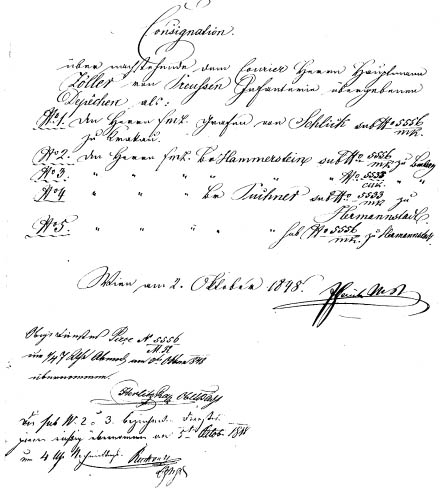 Consignation
über nachstehende dem Courier Herrn Hauptmann
Zoller von Preussen Infanterie übergebenen
Depêchen als:
No 1. An Herrn Fml. Grafen von Schlick sub No 5556/MK.
zu Krakau.
No 2. An Herrn Fml. Br Hammerstein sub No 5556/MK zu Lemberg
No 3. " " " " " No 5538 " "
No 4 " " " Br Puchner sub No 5533/MK zu
Hermannstadt
No 5. " " " " sub No 5556/MK. zu Hermannstadt
Wien am 2. Oktober 1848.
Piece No 5556/MK
um 1/4 7 Uhr Abends am Oktober 848
übernommen.
Die sub No 2 u 3. Dienstes
richtig übernommen am 5t Octob. 848
um 4 Uhr Nachmittags.